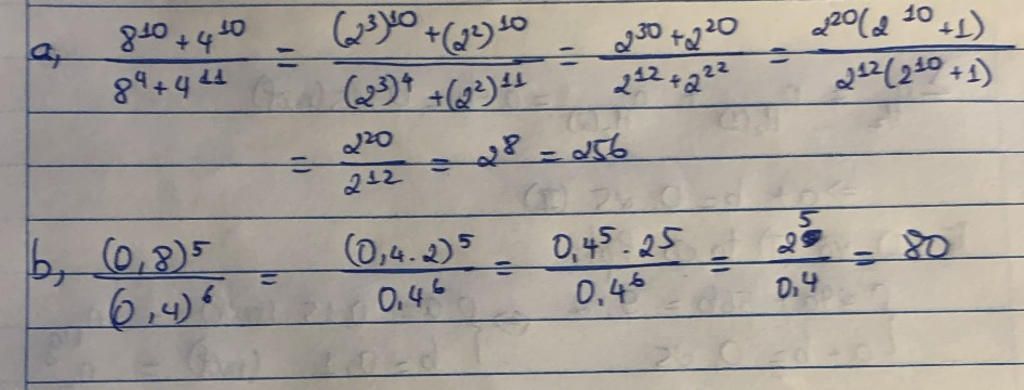 a, (8^10 + 4^10)/(8^4 + 4^11) = ((2^3)^10 + (2^2)^10)/((2^3)^4 + (2^2)^11) = (2^30 + 2^20)/(2^12 + 2^22) = (2^20(2^10 + 1))/(2^12(2^10 + 1))
= 2^20/2^12 = 2^8 = 256
b, (0,8)^5/(0,4)^6 = (0,4.2)^5/0,4^6 = (0,4^5 . 2^5)/0,4^6 = 2^5/0,4 = 80